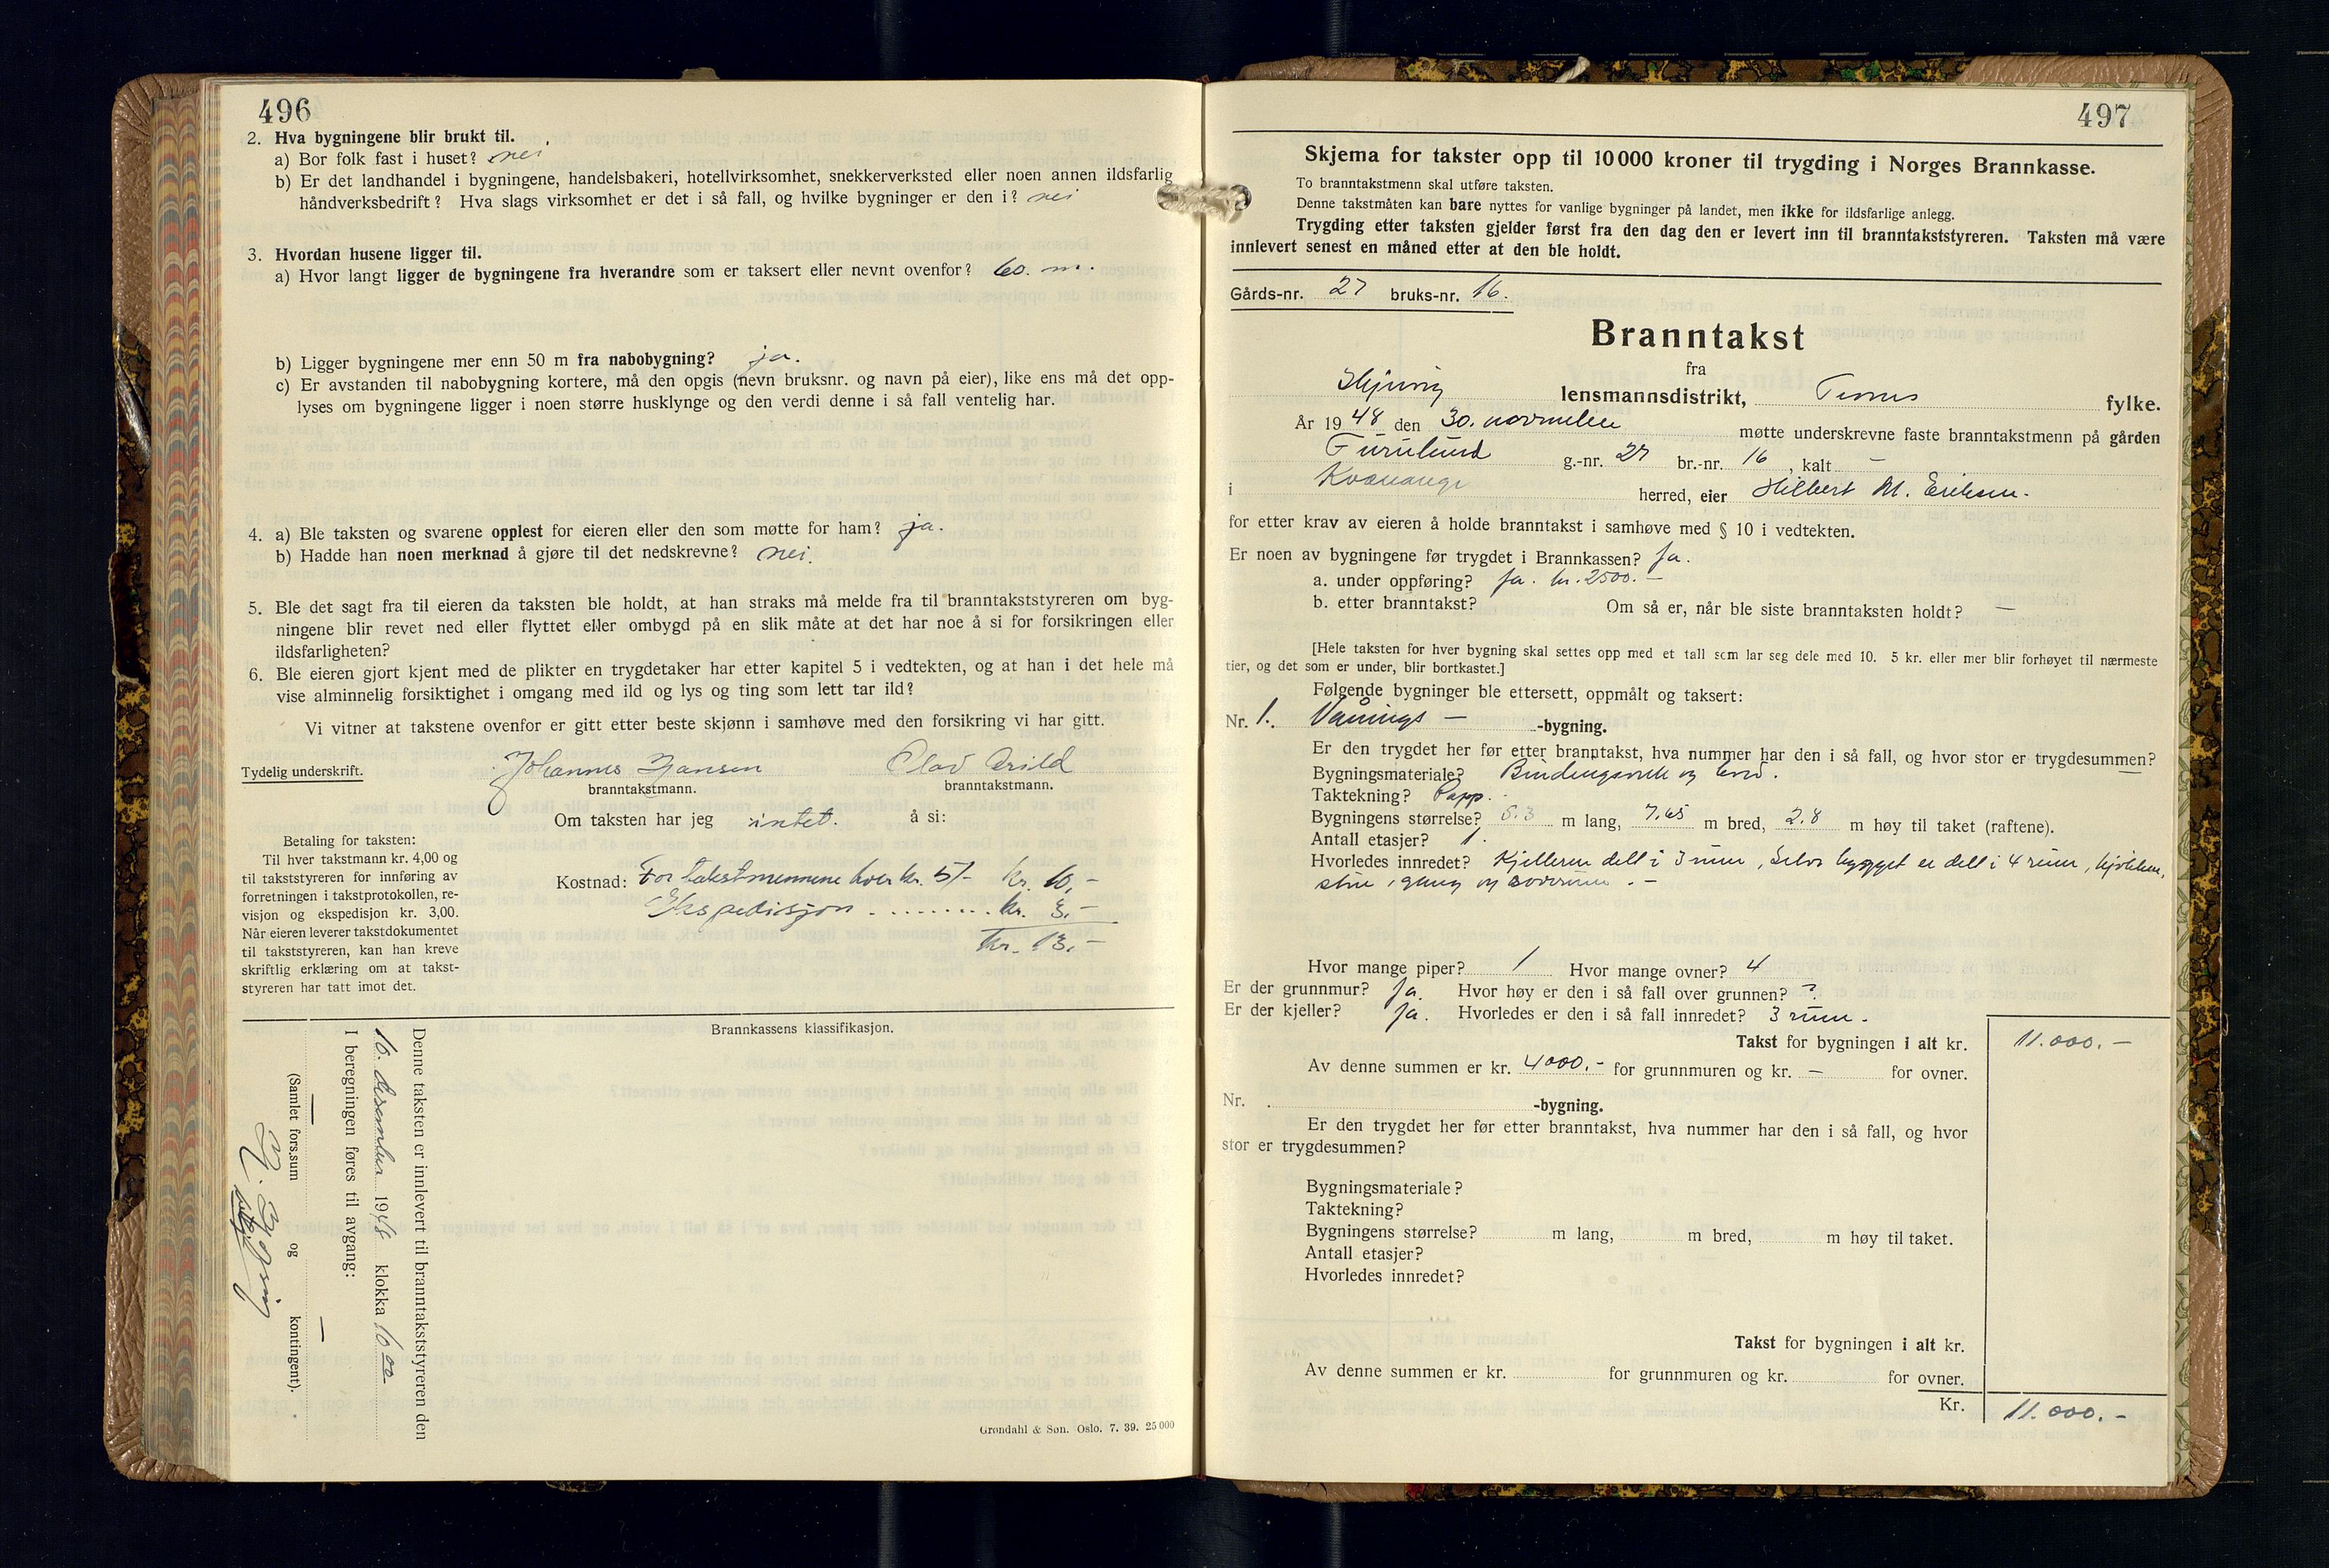 496
2. Hva bygningene blir brukt til.
a) Bor folk fast i huset? nei
b) Er det landhandel i bygningene, handelsbakeri, hotellvirksomhet, snekkerverksted eller noen annen ildsfarlig
håndverksbedrift? Hva slags virksomhet er det i så fall, og hvilke bygninger er den i? nei
3. Hvordan husene ligger til.
a) Hvor langt ligger de bygningene fra hverandre som er taksert eller nevnt ovenfor? 60. m.
b) Ligger bygningene mer enn 50 m fra nabobygning? ja.
c) Er avstanden til nabobygning kortere, må den opgis (nevn bruksnr. og navn på eier), like ens må det opp-
lyses om bygningene ligger i noen større husklynge og den verdi denne i så fall ventelig har.
4. a) Ble taksten og svarene opplest for eieren eller den som møtte for ham? ja.
b) Hadde han noen merknad å gjøre til det nedskrevne? nei.
5. Ble det sagt fra til eieren da taksten ble holdt, at han straks må melde fra til branntakststyreren om byg-
ningene blir revet ned eller flyttet eller ombygd på en slik måte at det har noe å si for forsikringen eller
ildsfarligheten?
6. Ble eieren gjort kjent med de plikter en trygdetaker har etter kapitel 5 i vedtekten, og at han i det hele må
vise alminnelig forsiktighet i omgang med ild og lys og ting som lett tar ild?
Vi vitner at takstene ovenfor er gitt etter beste skjønn i samhøve med den forsikring vi har gitt.
Tydelig underskrift. Johannes Hansen Olav Arild
branntakstmann. branntakstmann.
Om taksten har jeg intet. å si:
Betaling for taksten:
Til hver takstmann kr. 4,00 og
til takststyreren for innføring av
forretningen i takstprotokollen, re-
visjon og ekspedisjon kr. 3,00.
Når eieren leverer takstdokumentet
til takststyreren, kan han kreve
skriftlig erklæring om at takst-
styreren har tatt imot det.
Kostnad: For takstmennene hver kr. 5/- kr. 10,-
Ekspedisjon ......... kr. 3.-
Kr. 13.-
Brannkassens klassifikasjon.
Denne taksten er innlevert til branntakststyreren den
16. desember 1948 klokka 10 00
I beregningen føres til avgang:
— —
(Samlet fors.sum og kontingent).
Grøndahl & Søn. Oslo. 7. 39. 25 000
497
Skjema for takster opp til 10 000 kroner til trygding i Norges Brannkasse.
To branntakstmenn skal utføre taksten.
Denne takstmåten kan bare nyttes for vanlige bygninger på landet, men ikke for ildsfarlige anlegg.
Trygding etter taksten gjelder først fra den dag den er levert inn til branntakststyreren. Taksten må være
innlevert senest en måned etter at den ble holdt.
Gårds-nr. 27 bruks-nr. 16.
Branntakst
fra
Skjervøy lensmannsdistrikt, Troms fylke.
År 1948 den 30. november møtte underskrevne faste branntakstmenn på gården
Furulund g.-nr. 27 br.-nr. 16, kalt —
i Kvænangen herred, eier Hilbert M. Eriksen.
for etter krav av eieren å holde branntakst i samhøve med § 10 i vedtekten.
Er noen av bygningene før trygdet i Brannkassen? Ja.
a. under oppføring? ja. kr. 2500.—
b. etter branntakst? Om så er, når ble siste branntaksten holdt? —
[Hele taksten for hver bygning skal settes opp med et tall som lar seg dele med 10. 5 kr. eller mer blir forhøyet til nærmeste
tier, og det som er under, blir bortkastet.]
Følgende bygninger ble ettersett, oppmålt og taksert:
Nr. 1. Vånings — -bygning.
Er den trygdet her før etter branntakst, hva nummer har den i så fall, og hvor stor er trygdesummen? —
Bygningsmateriale? Bindingsverk og bord.
Taktekning? Papp.
Bygningens størrelse? m lang, 7.65 m bred, 2.8 m høy til taket (raftene).
Antall etasjer? 1.
Hvorledes innredet? Kjelleren delt i 3 rum, Selve bygget er delt i 4 rum, kjøkken,
stue, gang og soverum.—
Hvor mange piper? 1 Hvor mange ovner? 4
Er der grunnmur? Ja. Hvor høy er den i så fall over grunnen? ?
Er der kjeller? Ja. Hvorledes er den i så fall innredet? 3 rum.
Takst for bygningen i alt kr. 11.000.—
Av denne summen er kr. 4000.- for grunnmuren og kr. — for ovner.
Nr. . -bygning.
Er den trygdet her før etter branntakst, hva nummer har den i så fall, og hvor
stor er trygdesummen?
Bygningsmateriale?
Taktekning?
Bygningens størrelse? m lang, m bred, m høy til taket.
Antall etasjer?
Hvorledes innredet?
Takst for bygningen i alt kr.
Av denne summen er kr. for grunnmuren og kr. for ovner.
Kr. 11.000.-